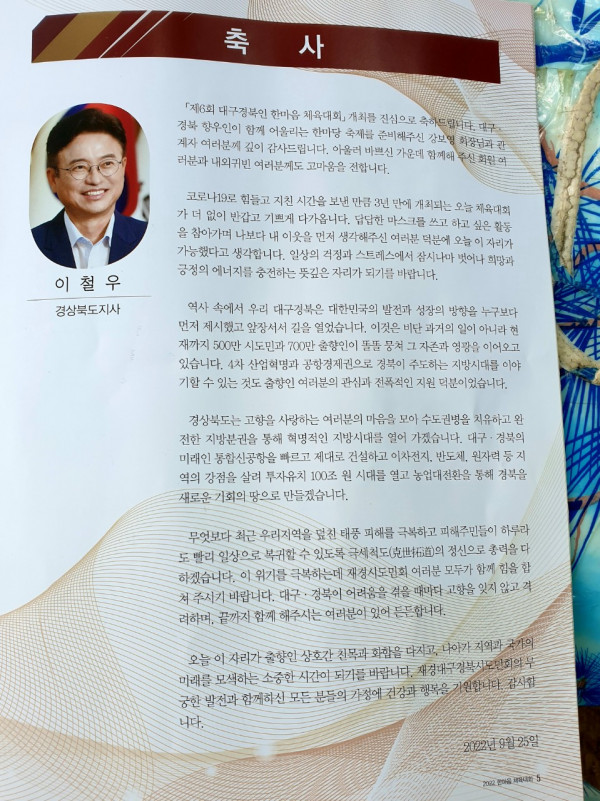 축 사
「제6회 대구경북인 한마음 체육대회」 개최를 진심으로 축하드립니다. 대구·
경북 향우인이 함께 어울리는 한마당 축제를 준비해주신 강보영 회장님과 관
계자 여러분께 깊이 감사드립니다. 아울러 바쁘신 가운데 함께해 주신 회원 여
러분과 내외귀빈 여러분께도 고마움을 전합니다.
코로나19로 힘들고 지친 시간을 보낸 만큼 3년 만에 개최되는 오늘 체육대회
가 더 없이 반갑고 기쁘게 다가옵니다. 답답한 마스크를 쓰고 하고 싶은 활동
을 참아가며 나보다 내 이웃을 먼저 생각해주신 여러분 덕분에 오늘 이 자리가
가능했다고 생각합니다. 일상의 걱정과 스트레스에서 잠시나마 벗어나 희망과
긍정의 에너지를 충전하는 뜻깊은 자리가 되기를 바랍니다.
이 철 우
경상북도지사
역사 속에서 우리 대구경북은 대한민국의 발전과 성장의 방향을 누구보다
먼저 제시했고 앞장서서 길을 열었습니다. 이것은 비단 과거의 일이 아니라 현
재까지 500만 시도민과 700만 출향인이 똘똘 뭉쳐 그 자존과 영광을 이어오고
있습니다. 4차 산업혁명과 공항경제권으로 경북이 주도하는 지방시대를 이야
기할 수 있는 것도 출향인 여러분의 관심과 전폭적인 지원 덕분이었습니다.
경상북도는 고향을 사랑하는 여러분의 마음을 모아 수도권병을 치유하고 완
전한 지방분권을 통해 혁명적인 지방시대를 열어 가겠습니다. 대구·경북의
미래인 통합신공항을 빠르고 제대로 건설하고 이차전지, 반도체, 원자력 등 지
역의 강점을 살려 투자유치 100조 원 시대를 열고 농업대전환을 통해 경북을
새로운 기회의 땅으로 만들겠습니다.
무엇보다 최근 우리지역을 덮친 태풍 피해를 극복하고 피해주민들이 하루라
도 빨리 일상으로 복귀할 수 있도록 극세척도(克世拓道)의 정신으로 총력을 다
하겠습니다. 이 위기를 극복하는데 재경시도민회 여러분 모두가 함께 힘을 합
쳐 주시기 바랍니다. 대구·경북이 어려움을 겪을 때마다 고향을 잊지 않고 격
려하며, 끝까지 함께 해주시는 여러분이 있어 든든합니다.
오늘 이 자리가 출향인 상호간 친목과 화합을 다지고, 나아가 지역과 국가의
미래를 모색하는 소중한 시간이 되기를 바랍니다. 재경대구경북시도민회의 무
궁한 발전과 함께하신 모든 분들의 가정에 건강과 행복을 기원합니다. 감사합
니다.
2022년 9월 25일
2022 한마음 체육대회 5